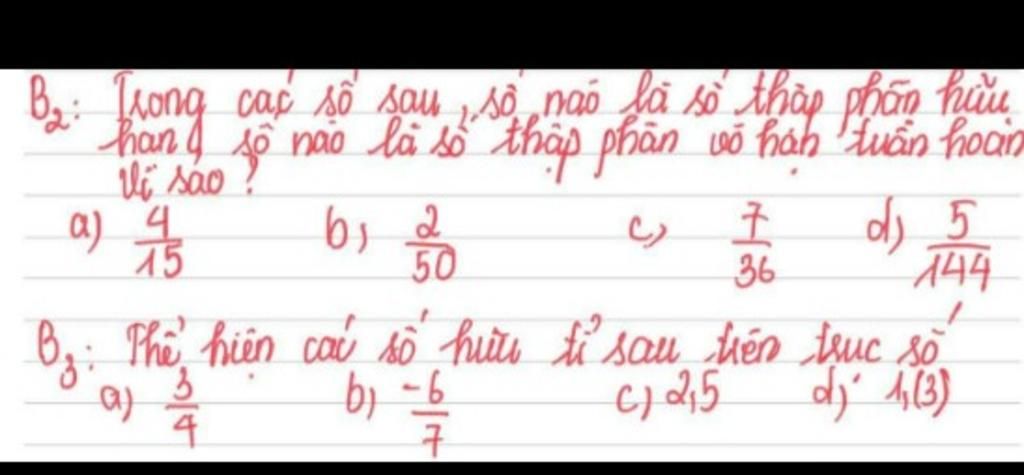 B2: Trong các số sau, số nào là số thập phân hữu
hạn, số nào là số thập phân vô hạn tuần hoàn
Vì sao?
a) 4/15 b) 2/50 c) 7/36 d) 5/144
B3: Thể hiện các số hữu tỉ sau trên trục số
a) 3/4 b) -6/7 c) 2,5 d) 1,(3)